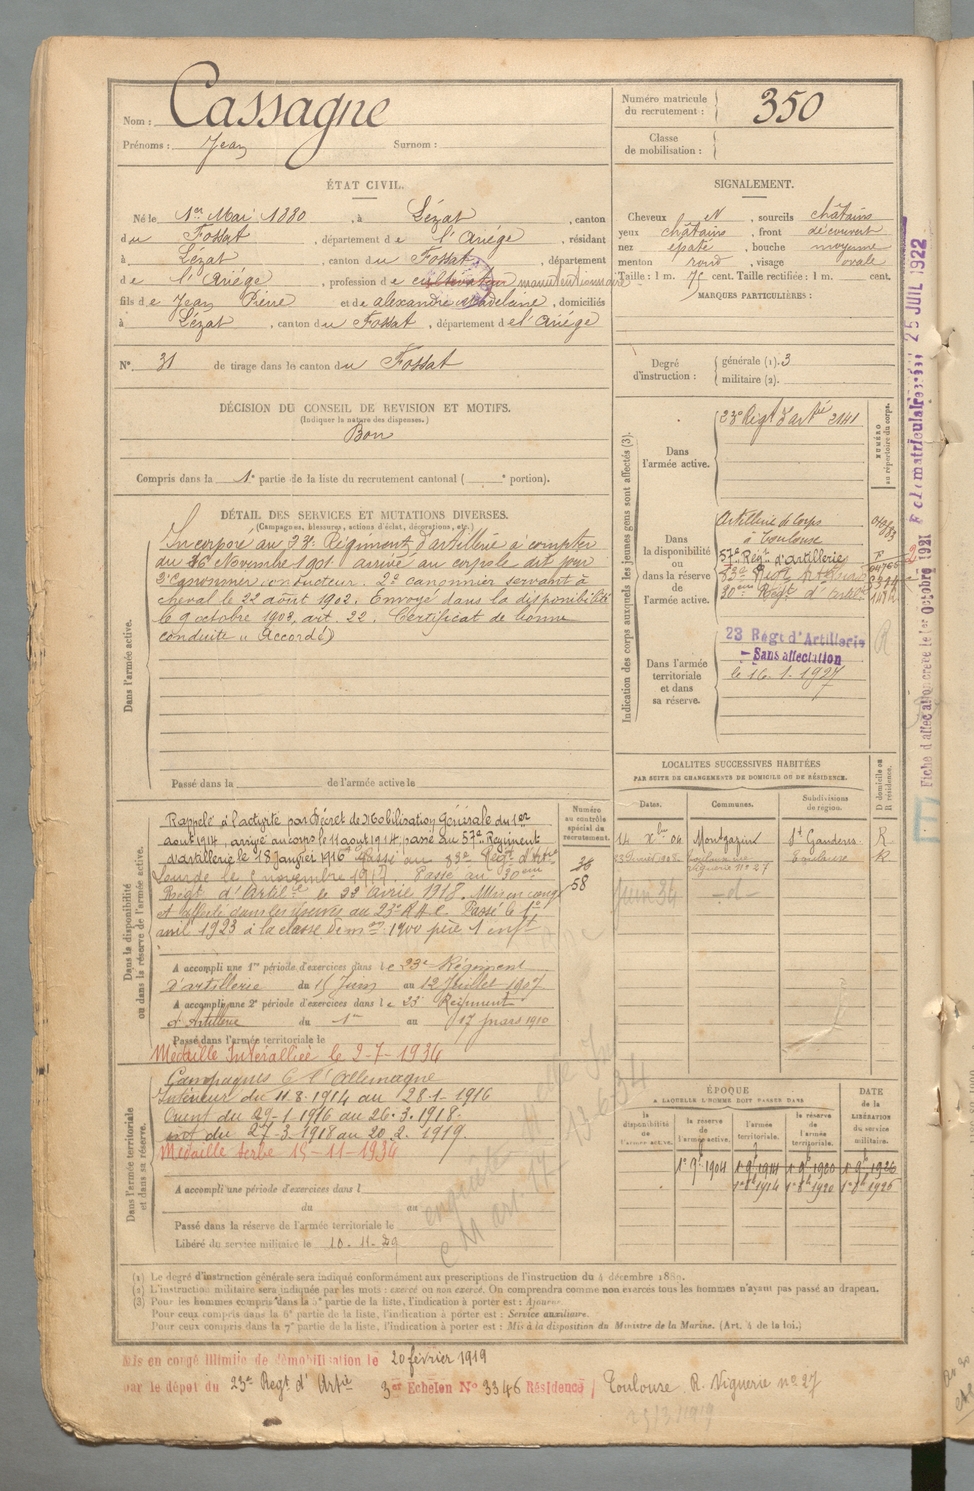 Nom : Cassagne
Prénoms : Jean Surnom :
Numéro matricule du recrutement : 350
Classe de mobilisation :
ÉTAT CIVIL.
Né le 1er Mai 1880, à Lézat, canton
du Fossat, département de l'Ariége, résidant
à Lézat, canton du Fossat, département
de l'Ariége, profession de cultivateur manutentionnaire
fils de Jean Pierre et de alexandrie Madelaine, domiciliés
à Lézat, canton du Fossat, département de l'Ariége
N° 31 de tirage dans le canton du Fossat
DÉCISION DU CONSEIL DE REVISION ET MOTIFS.
(Indiquer la nature des dispenses.)
Bon
Compris dans la 1e partie de la liste du recrutement cantonal ( e portion).
SIGNALEMENT.
Cheveux N, sourcils châtains
yeux châtains, front découvert
nez épaté, bouche moyenne
menton rond, visage ovale
Taille : 1 m. 75 cent. Taille rectifiée : 1 m. cent.
MARQUES PARTICULIÈRES :
Degré d'instruction : générale (1). 3
militaire (2).
DÉTAIL DES SERVICES ET MUTATIONS DIVERSES.
(Campagnes, blessures, actions d'éclat, décorations, etc.)
Dans l'armée active.
Incorporé au 23e Régiment d'artillerie à compter
du 16 Novembre 1901 arrivé au corps le dit jour
2e canonnier conducteur. 2e canonnier servant à
cheval le 22 août 1902. Envoyé dans la disponibilité
le 9 octobre 1903, art. 22. Certificat de bonne
conduite "Accordé"
Passé dans la de l'armée active le
Indication des corps auxquels les jeunes gens sont affectés (3).
NUMÉRO au répertoire du corps.
Dans l'armée active.
23e Régt d'artie 2141
Dans la disponibilité ou dans la réserve de l'armée active.
Artillerie de Corps
à Toulouse
57e Régt d'Artillerie
83e Régt Artillerie
30eme Régt d'Artie
Dans l'armée territoriale et dans sa réserve.
23 Régt d'Artillerie
Sans affectation
le 16.1.1927
R
Fiche d'affectation créée le 1er Octobre 1921
25 JUIL 1922
LOCALITÉS SUCCESSIVES HABITÉES
PAR SUITE DE CHANGEMENTS DE DOMICILE OU DE RÉSIDENCE.
Dates. Communes. Subdivisions de région. D domicile ou R résidence.
14 Xbre 04 Montgazin St Gaudens R
Toulouse rue Viguerie N° 27 Toulouse R
Juin 34 -d-
Dans la disponibilité ou dans la réserve de l'armée active.
Numéro au contrôle spécial du recrutement.
58
Rappelé à l'activité par Décret de Mobilisation Générale du 1er
août 1914, arrivé au corps le 11 août 1914, passé au 57e Régiment
d'artillerie le 18 Janvier 1916 Passé au 83e Régt d'Artie
Lourde le novembre 1917. Passé au 30eme
Régt d'Artie le 22 avril 1918. Mis en congé
et affecté dans les réserves au 23e R.A.C. Passé le 1er
avril 1923 à la classe de mon 1900 père 1 enft
A accompli une 1re période d'exercices dans le 23e Régiment
d'artillerie du 15 Juin au 12 Juillet 1907
A accompli une 2e période d'exercices dans le 23e Régiment
d'Artillerie du 1er au 17 mars 1910
Passé dans l'armée territoriale le
Médaille Interalliée le 2-7-1934
Dans l'armée territoriale et dans sa réserve.
Campagnes C. l'Allemagne
Intérieur du 11.8.1914 au 28.1.1916
Orient du 29-1-1916 au 26.3.1918.
du 27-3-1918 au 20.2.1919.
Médaille Serbe 15-11-1934
A accompli une période d'exercices dans l
du au
Passé dans la réserve de l'armée territoriale le
Libéré du service militaire le 10.11.29
ÉPOQUE
A LAQUELLE L'HOMME DOIT PASSER DANS
la disponibilité de l'armée active. la réserve de l'armée active. l'armée territoriale. la réserve de l'armée territoriale. DATE de la LIBÉRATION du service militaire.
1er 9bre 1904 1er 9bre 1914 1er 9bre 1920 1er 9bre 1926
1er 8bre 1914 1er 8bre 1920 1er 8bre 1926
(1) Le degré d'instruction générale sera indiqué conformément aux prescriptions de l'instruction du 4 décembre 1889.
(2) L'instruction militaire sera indiquée par les mots : exercé ou non exercé. On comprendra comme non exercés tous les hommes n'ayant pas passé au drapeau.
(3) Pour les hommes compris dans la 5e partie de la liste, l'indication à porter est : Ajourné.
Pour ceux compris dans la 6e partie de la liste, l'indication à porter est : Service auxiliaire.
Pour ceux compris dans la 7e partie de la liste, l'indication à porter est : Mis à la disposition du Ministre de la Marine. (Art. 4 de la loi.)
Mis en congé illimité de démobilisation le 20 février 1919
par le dépôt du 23e Regt d'Artie 3er Echelon N° 3346 Résidence Toulouse R. Viguerie n° 27